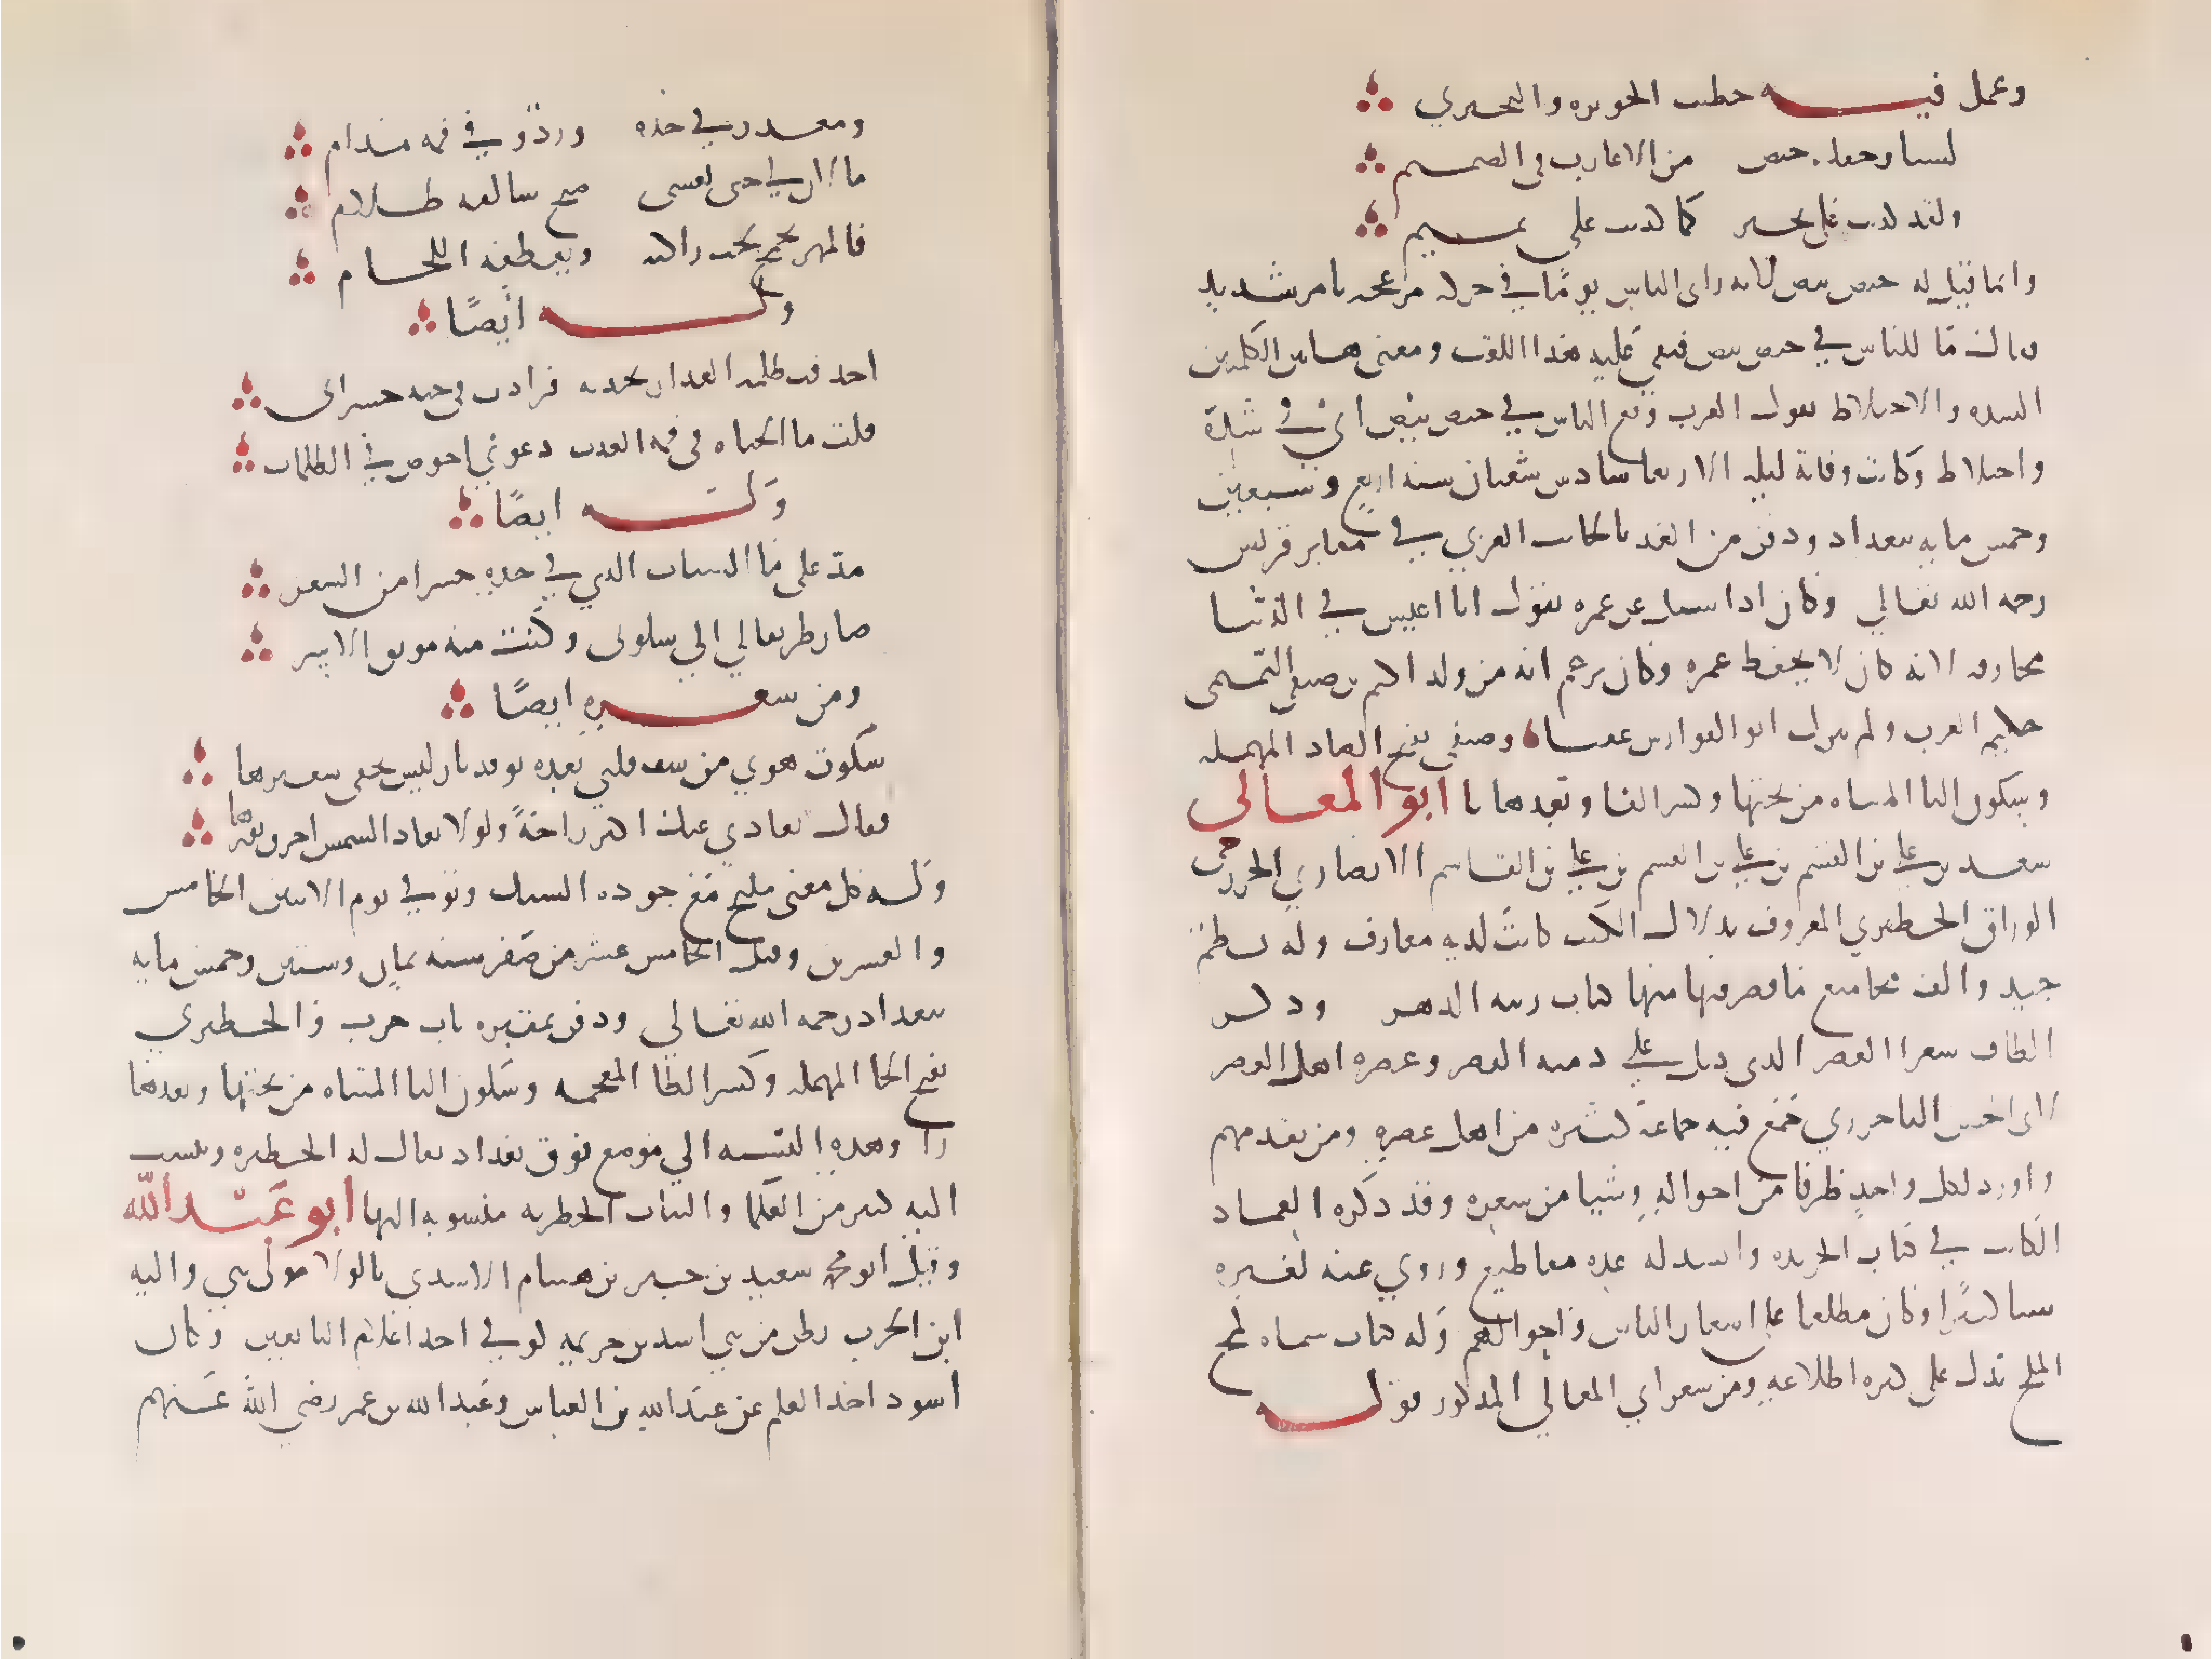 وعمل فيه خطيب الحويره والبحيري
لسنا وحقك حيص بيص من الاعارب في الصميم
ولقد كذبت على بحير كما كذبت على تميم
وانما قيل له حيص بيص لانه راى الناس يومًا في حركه مزعجه وامر شديد
فقال ما للناس في حيص بيص فبقي عليه هذا اللقب ومعنى هاتين الكلمتين
الشده والاختلاط تقول العرب وقع الناس في حيص بيص اي في شدة
واختلاط وكانت وفاته ليله الاربعا سادس شعبان سنه اربع وسبعين
وخمس مايه ببغداد ودفن من الغد بالجانب الغربي في مقابر قريش
رحمه الله تعالي وكان اذا سيل عن عمره يقول انا اعيش في الدنيا
مجازفه لانه كان لا يحفظ عمره وكان يزعم انه من ولد اكثم بن صيفي التميمي
حكيم العرب ولم يترك ابو الفوارس عقبا وصيفي بفتح الصاد المهمله
وسكون اليا المثناه من تحتها وكسر الفا وبعدها يا ابو المعالي
سعد بن علي بن القسم بن علي بن القسم بن علي بن القاسم الانصاري الخزرجي
الوراق الحظيري المعروف بدلال الكتب كانت لديه معارف وله نظم
جيد والف مجاميع ما قصر فيها منها كتاب زينه الدهر وذكر
الطاف شعرا العصر الذي ذيل علي دميه القصر وعصره اهل العصر
لابي الحسن الباخرزي جمع فيه جماعة كثيره من اهل عصره ومن تقدمهم
واورد لكل واحد طرفا من احواله وشيا من شعره وقد ذكره العماد
الكاتب في كتاب الخريده وانشد له عده مقاطيع وروي عنه لغيره
شيا كثيرًا وكان مطلعا علي اشعار الناس واحوالهم وله كتاب سماه لمح
الملح تدل على كثره اطلاعه ومن شعر ابي المعالي المذكور قوله
ومعذر في خده ورد وفي فمه مدام
ما لان لي حتى تغشى صبح سالفه ظلام
فالمهر يجمح تحت راكبه ويعطفه اللجام
وله ايضًا
احدقت ظلمه العذار بخديه فزادت في حبه حسراتي
قلت ما الحياه في فمه العذب دعوني اخوض في الظلمات
وله ايضًا
مد على ما الشباب الذي في خده جسرا من الشعر
صار طريقا لي الي سلوتى وكنت منه موثق الاسر
ومن شعره ايضًا
شكوت هوي من شف قلبي بعده توقد نار ليس يخفى سعيرها
فقال بعادي عنك اكثر راحةً ولولا بعاد الشمس احرق نورها
وله كل معنى مليح مع جوده السبك وتوفي يوم الاثنين الخامس
والعشرين وقيل الخامس عشر من صفر سنه ثمان وستين وخمس مايه
ببغداد رحمه الله تعالي ودفن بمقبره باب حرب والحظيري
بفتح الحا المهمله وكسر الظا المعجمه وسكون اليا المثناه من تحتها وبعدها
را وهذه النسبه الي موضع فوق بغداد يقال له الحظيره وينسب
اليه كثير من العلما والثياب الحظريه منسوبه اليها ابو عبد الله
وقيل ابو محمد سعيد بن جبير بن هشام الاسدي بالولا مولى بني والبه
ابن الحرث بطن من بني اسد بن خزيمه كوفي احد اعلام التابعين وكان
اسود اخذ العلم عن عبد الله بن العباس وعبد الله بن عمر رضي الله عنهم